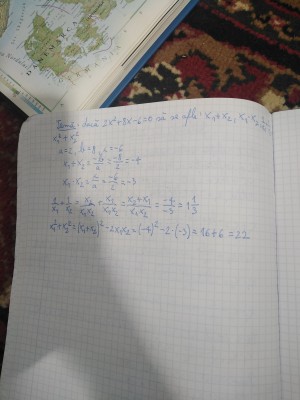 Tema: dacă 2x²+8x-6=0 să se afle: x₁+x₂, x₁·x₂, 1/x₁+1/x₂
x₁²+x₂²
a=2, b=8, c=-6
x₁+x₂=-b/a=-8/2=-4
x₁·x₂=c/a=-6/2=-3
1/x₁+1/x₂=x₂/x₁x₂+x₁/x₁x₂=x₂+x₁/x₁x₂=-4/-3=1 1/3
x₁²+x₂²=(x₁+x₂)²-2x₁x₂=(-4)²-2·(-3)=16+6=22